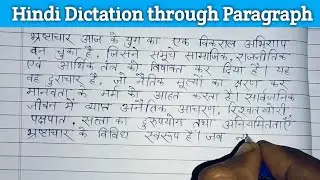 Hindi Dictation through Paragraph
भ्रष्टाचार आज के युग का एक विकराल अभिशाप
बन चुका है, जिसने समूचे सामाजिक, राजनीतिक
एवं आर्थिक तंत्र को विषाक्त कर दिया है। यह
वह दुराचार है, जो नैतिक मूल्यों का क्षरण कर
मानवता के मर्म को आहत करता है। सार्वजनिक
जीवन में व्याप्त अनैतिक आचरण, रिश्वतखोरी,
पक्षपात, सत्ता का दुरुपयोग तथा अनियमितताएँ
भ्रष्टाचार के विविध स्वरूप हैं। जब